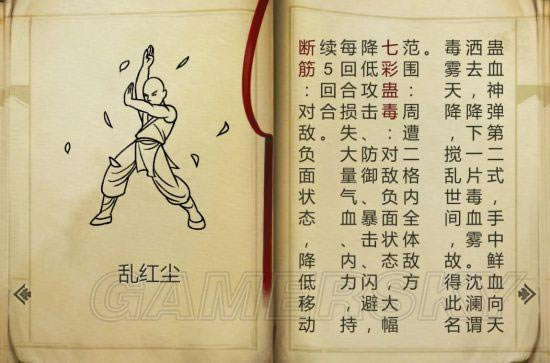 乱红尘
蛊血神弹第二式，手中鲜血向天
洒去，降下一片毒血雾。沈澜谓
毒雾天降，搅乱世间，故得此名
。
范围：周遭二格内全体敌方
七彩蛊毒：对敌负面状态，大幅
降低攻击、防御、暴击、闪避，
每回合损失大量气血、内力，持
续5回合。
断筋：对敌负面状态，降低移动
GAMERSKY